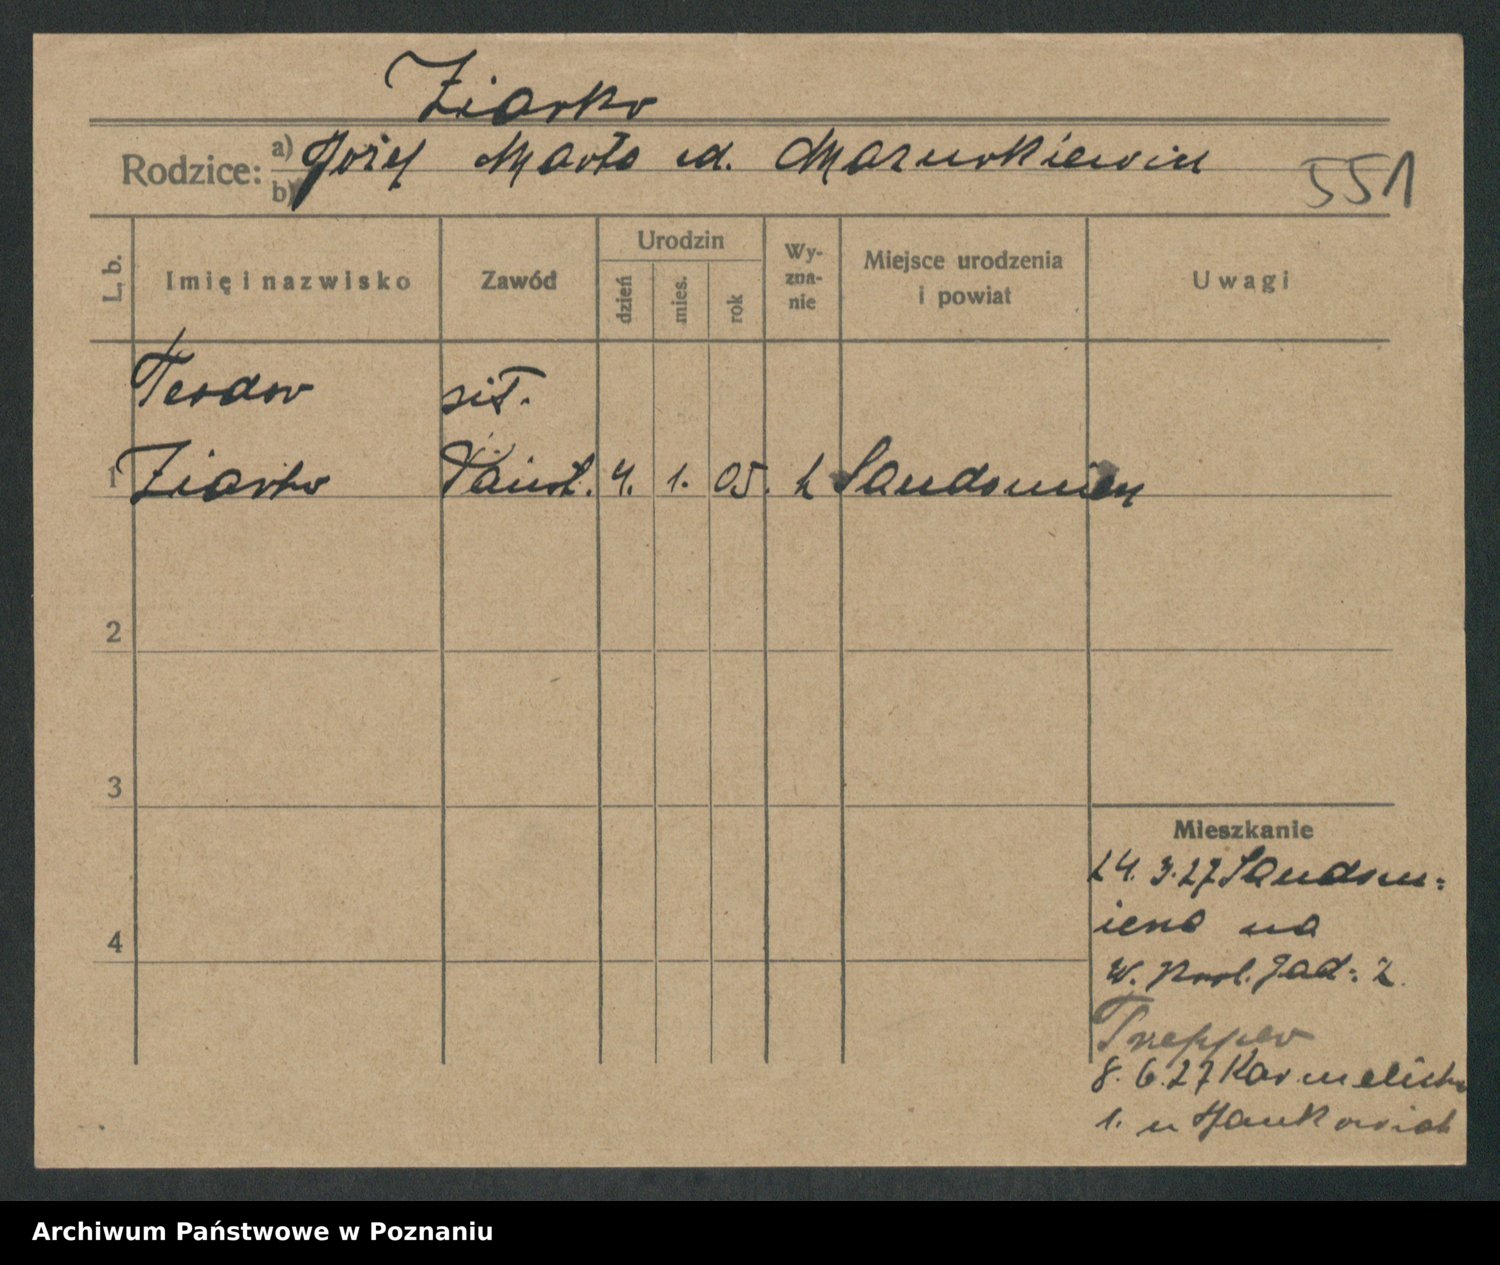 Ziarko
Rodzice: a) Józef Marta ud. Mazurkiewicz
b)
551
L. b.
Imię i nazwisko
Zawód
Urodzin
dzień
mies.
rok
Wy-
zna-
nie
Miejsce urodzenia
i powiat
Uwagi
Teodor
1 Ziarko 4. 1. 05. Sandomierz
2
3
4
Mieszkanie
24. 3. 27 Sandom=
ierza na
W. Król. Jad: 2.
Trepper
8. 6. 27 Karmelicka
1. u Jankowiak
Archiwum Państwowe w Poznaniu